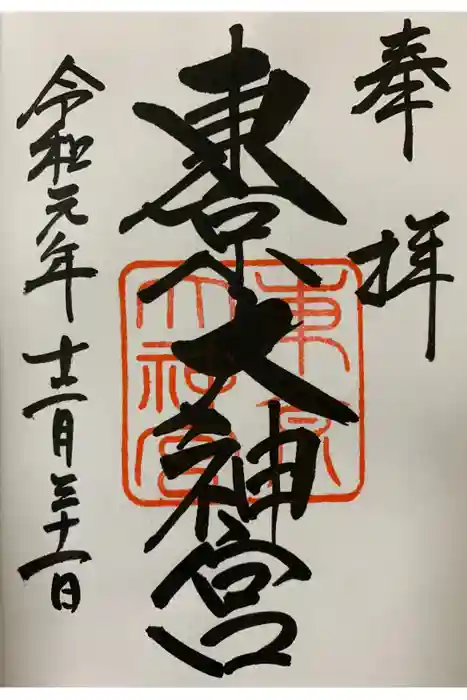 奉拝
東京大神宮
東京大神宮
令和元年十二月三十一日